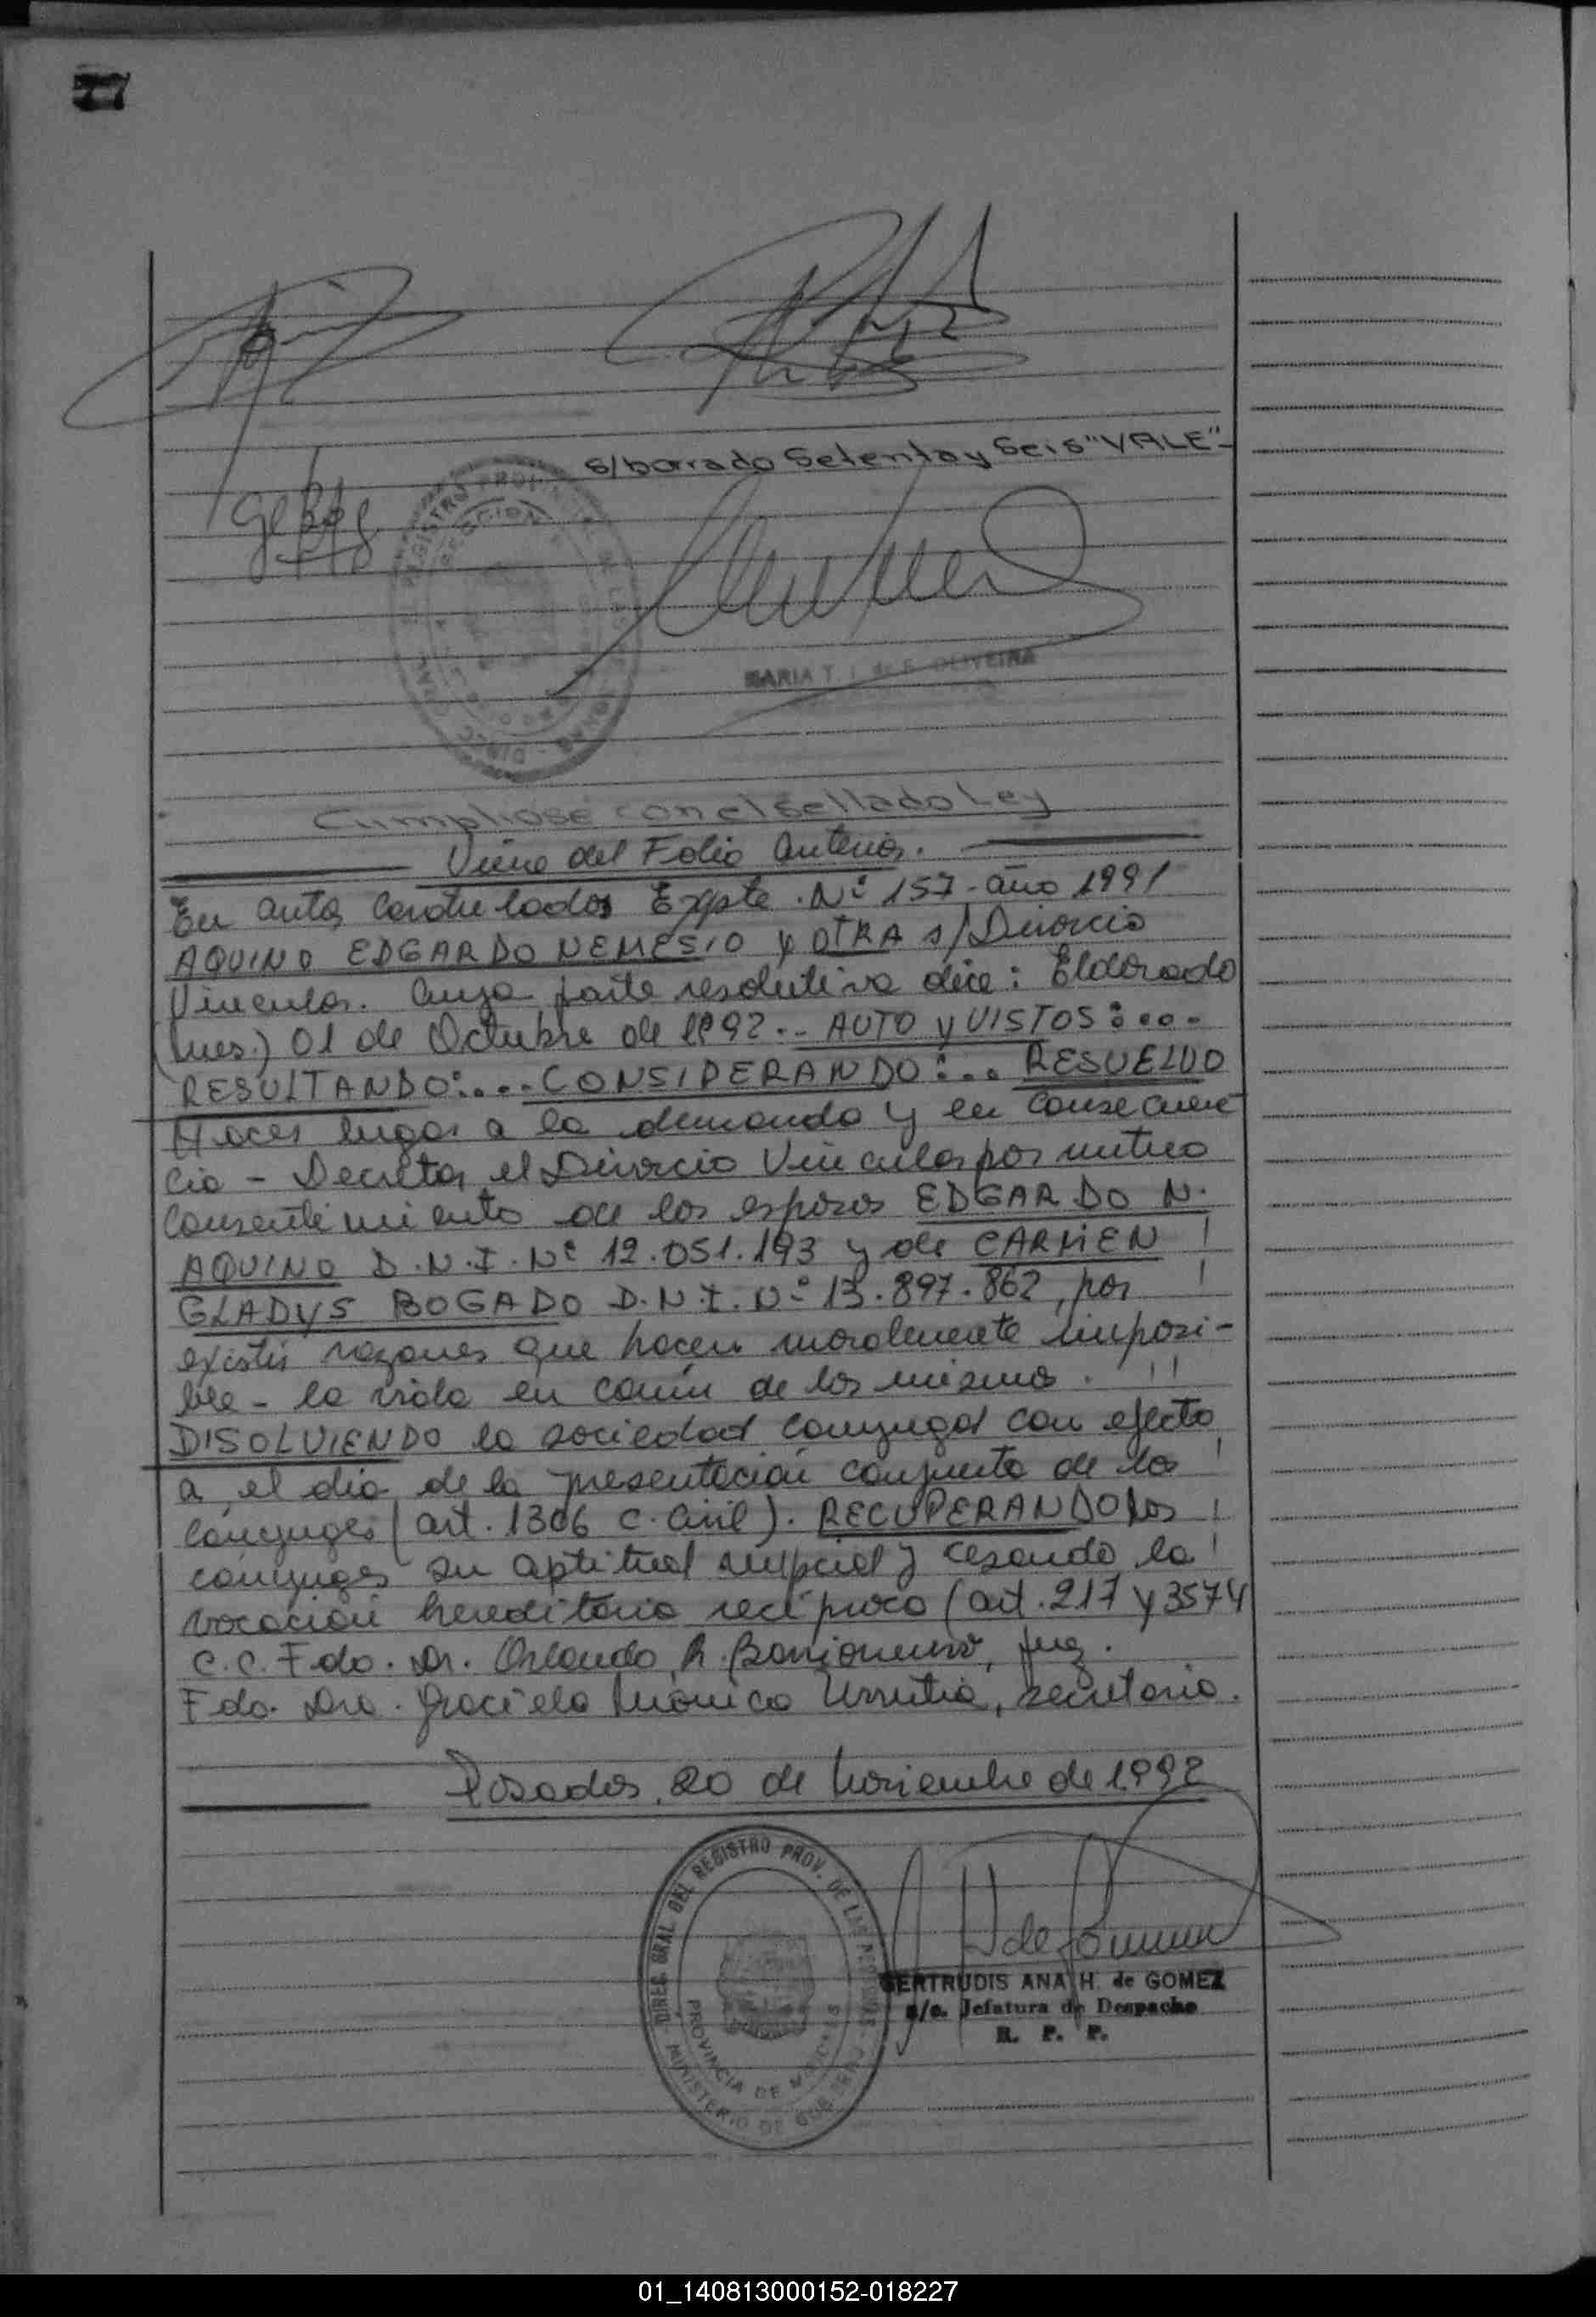 77
s/borrado Setenta y Seis "VALE"-
MARIA T. de OLIVEIRA
Cumpliose con el Sellado Ley
Viene del Folio Anterior.
En autos Caratulados Expte. Nº 157 - año 1991
AQUINO EDGARDO NEMESIO y OTRA s/Divorcio
Vincular. Cuya parte resolutiva dice: Eldorado
(Mnes.) 01 de Octubre de 1992.- AUTO y VISTOS:...
RESULTANDO:... CONSIDERANDO:... RESUELVO
Hacer lugar a la demanda y en Consecuen
cia - Decretar el Divorcio Vincular por mutuo
Consentimiento de los esposos EDGARDO N.
AQUINO D.N.I. Nº 12.051.193 y de CARMEN
GLADYS BOGADO D.N.I. Nº 13.897.862, por
existir razones que hacen moralmente imposi-
ble - la vida en común de los mismos.
DISOLVIENDO la sociedad conyugal con efecto
a el día de la presentación conjunta de los
cónyuges (art. 1306 C. Civil). RECUPERANDO los
cónyuges su aptitud nupcial y cesando la
vocación hereditaria recíproca (art. 217 y 3574
C.C. Fdo. Dr. Orlando R. Juez.
Fdo. Dra. Graciela Mónica Urrutia, secretaria.
Posadas, 20 de Noviembre de 1992
DIREC. GRAL DEL REGISTRO PROV. DE LAS PERSONAS
PROVINCIA DE MISIONES
MINISTERIO DE GOBIERNO
GERTRUDIS ANA H. de GOMEZ
a/c. Jefatura de Despacho
R. P. P.
01_140813000152-018227